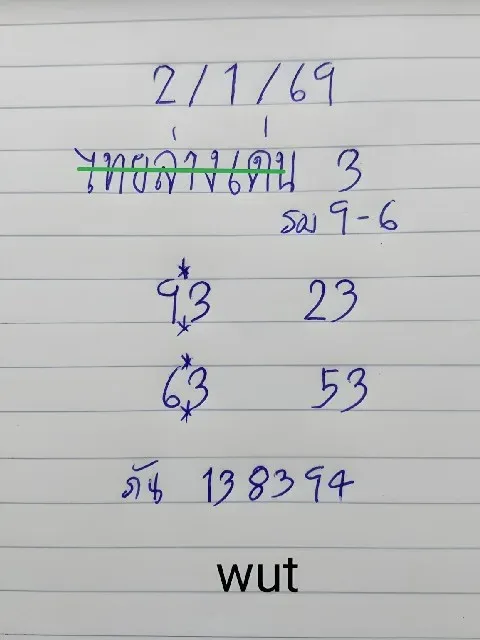 2/1/69
ไทยล่างเด่น 3
รอง 9-6
93 23
63 53
กัน 13 83 94
wut